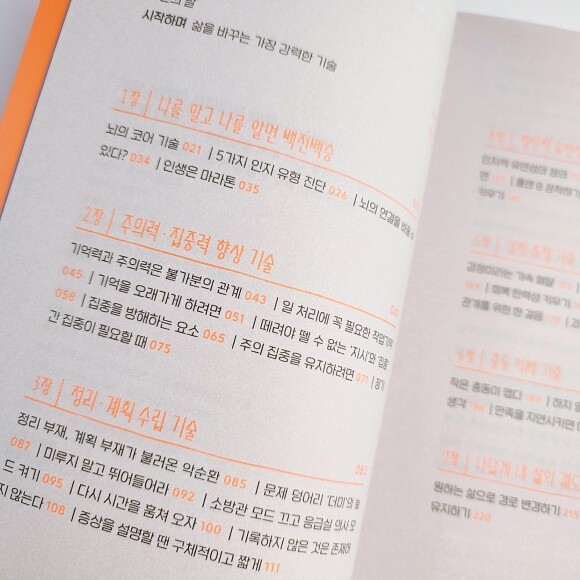 시작하며 삶을 바꾸는 가장 강력한 기술
1장 | 나를 알고 나를 알면 백전백승
뇌의 코어 기술 021 | 5가지 인지 유형 진단 026 | 뇌의 연결을 바꿀 수
있다? 034 | 인생은 마라톤 035
2장 | 주의력·집중력 향상 기술
기억력과 주의력은 불가분의 관계 043 | 일 처리에 꼭 필요한 작업기억
045 | 기억을 오래가게 하려면 051 | 떼려야 뗄 수 없는 '지시'와 '집중'
058 | 집중을 방해하는 요소 065 | 주의 집중을 유지하려면 071 | 장기
간 집중이 필요할 때 075
3장 | 정리·계획 수립 기술
083
정리 부재, 계획 부재가 불러온 악순환 085 | 문제 덩어리 '더미'의 늪
087 | 미루지 말고 뛰어들어라 092 | 소방관 모드 끄고 응급실 의사 모
드 켜기 095 | 다시 시간을 훔쳐 오자 100 | 기록하지 않은 것은 존재하
지 않는다 108 | 증상을 설명할 땐 구체적이고 짧게 111
4장
인지적 유연성의 정의
면 | 플랜 B 장착하기
키우기
5장 | 감정 조절 기술
감정이라는 가속 페달
| 회복 탄력성 키우기
관계를 위한 한 걸음
6장 | 충동 억제 기술
작은 충동이 껌다 189 | 하지
생각 196 | 만족을 지연시키면
7장 | 나답게 내 삶의
원하는 삶으로 경로 변경하기 215
유지하기 220